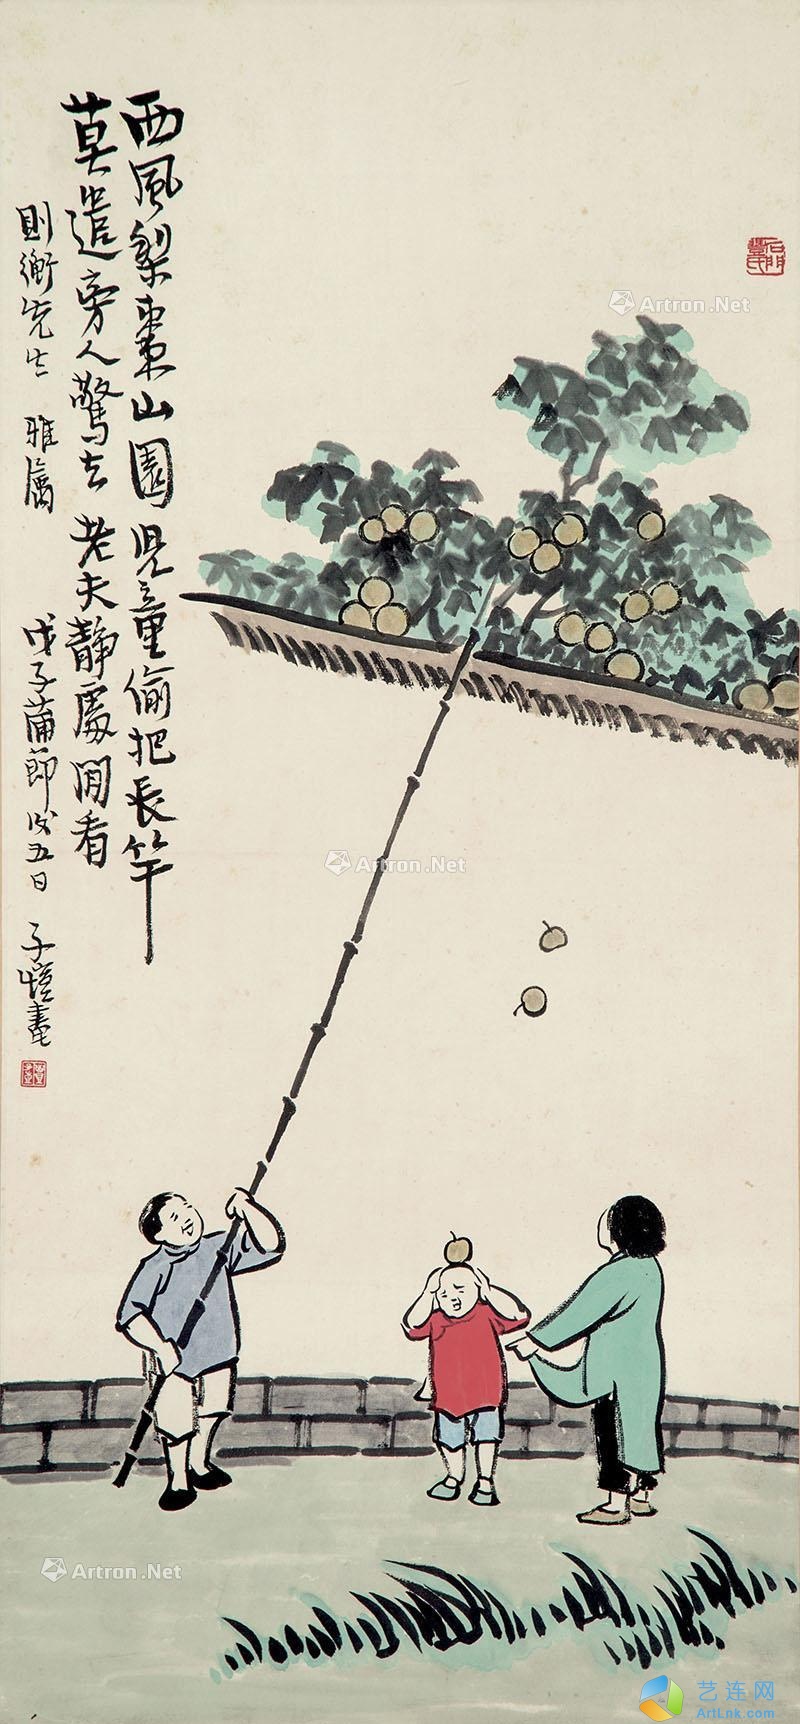 西風梨棗山園 兒童偷把長竿
莫遣旁人驚去 老夫靜處閒看
則衡先生 雅屬
戊子蒲節後五日 子愷畫
石門豐氏
Artron.Net
Artron.Net
Artron.Net
Artron.Net
艺连网
ArtLnk.com